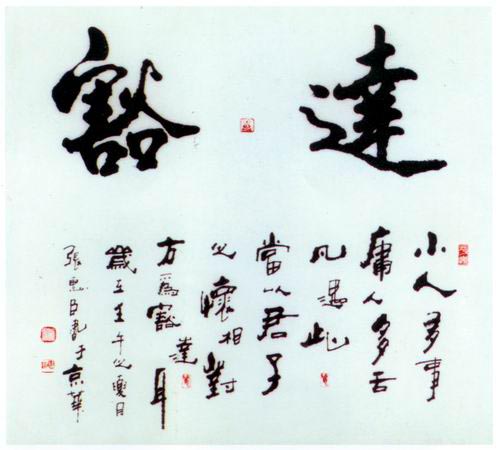 豁達
小人多事
庸人多舌
凡遇此
當以君子
之懷相對
方爲豁達耳
歲在壬午之夏月
張臣書于京華